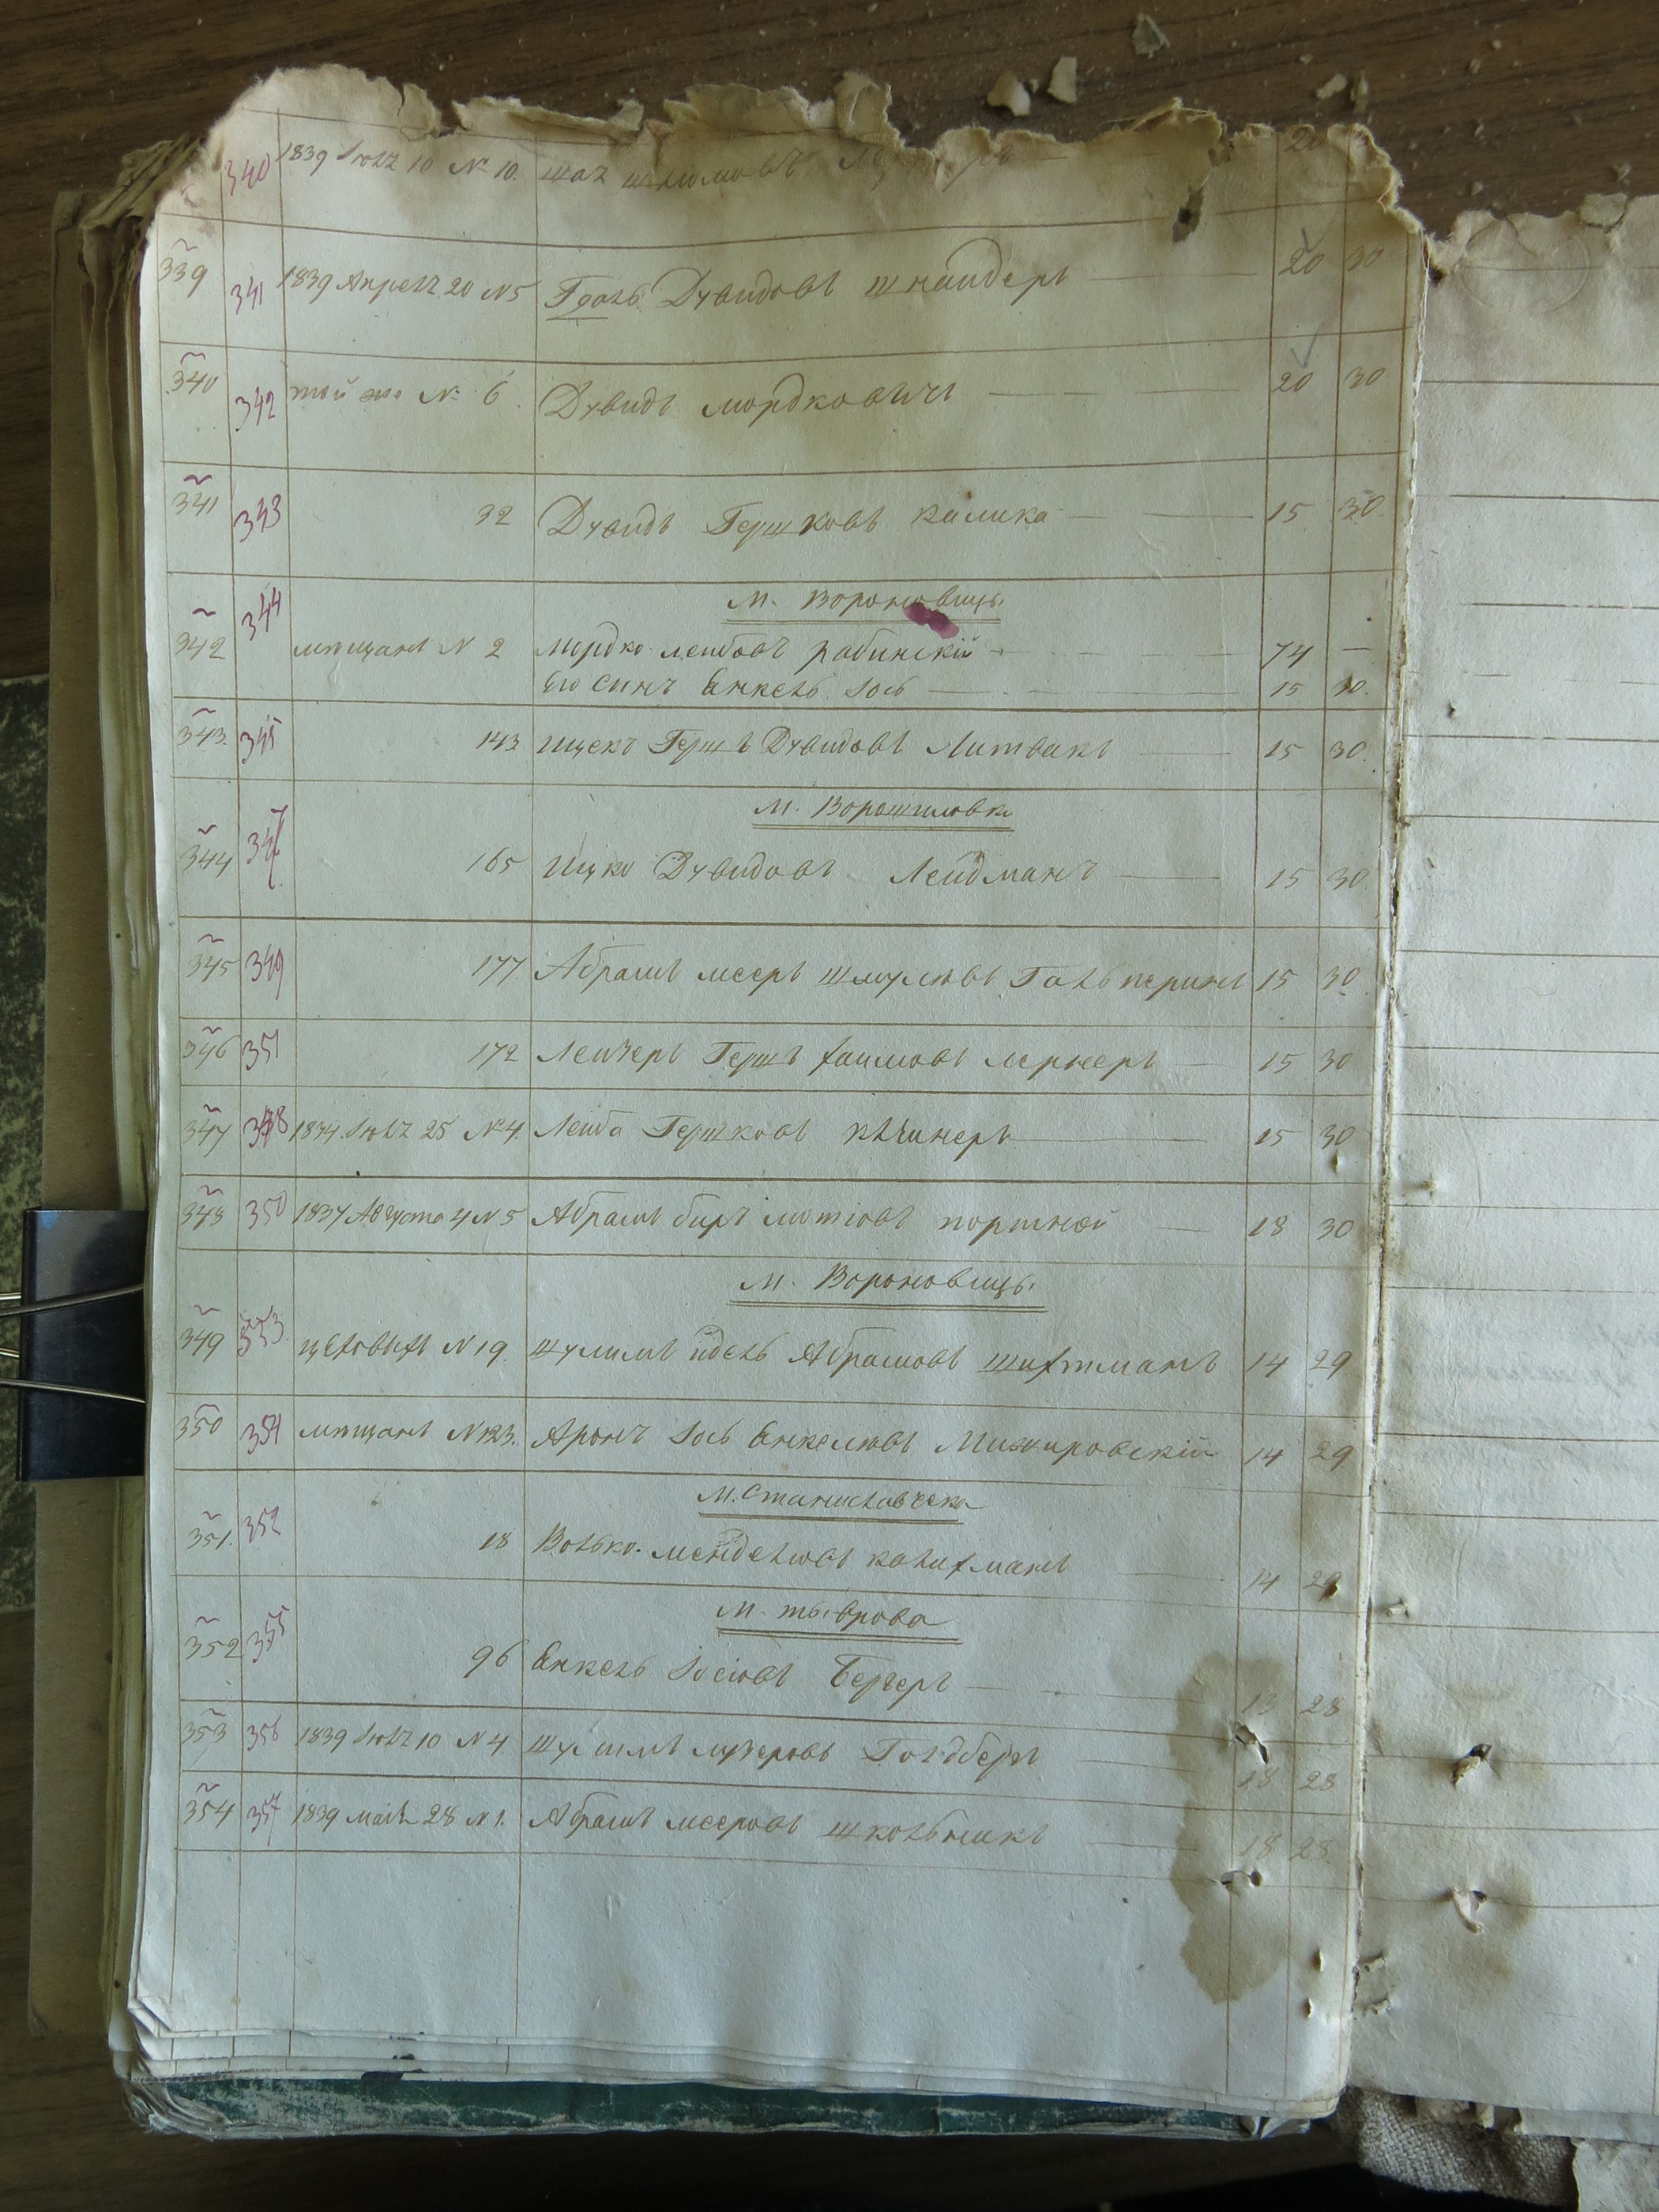 340 1839 Іюля 10 № 10. шая 20
339 341 1839 Апреля 20 № 5 Дувидовъ шнайдеръ 20 30
340 342 той же № 6 Дувидъ мордковичъ 20 30
341 343 32 Дувидъ Гершковъ калика 15 30
М. Вороновицы
342 344 мещанъ № 2 мордко лейбовъ рабинскій 74 —
его синъ Енкель Іось 15 30.
343. 345 143 ицекъ Гершъ Дувидовъ Литвакъ 15 30.
М. Ворошиловки
344 347 165 Ицко Дувидовъ Лейдманъ 15 30
345 349 177 Абрамъ мееръ Шмулювъ Гальперинъ 15 30
346 351 172 Лейзеръ Гершъ хаимовъ лернеръ 15 30
347 348 1834 Іюля 25 № 4 Лейба Гершковъ клинеръ 15 30
348 350 1837 Августа 4 № 5 Абрамъ беръ мотіовъ портной 18 30
М. Вороновицы
349 353 цеховыхъ № 19 шулимъ идель Абрамовъ шихтманъ 14 29
350 354 мещанъ № 123. Аронъ Іось Енкелювъ Мижировскій 14 29
М. Станиславчека
351. 352 18 Волько менделювъ калихманъ 14 29
М. тыврова
352 355 96 Енкель Іосіовъ Бергеръ 13 28
353 356 1839 Іюля 10 № 4 шулимъ лузеровъ Голдбергъ 18 28
354 357 1839 маія 28 № 1. Абрамъ мееровъ школьникъ 18 28